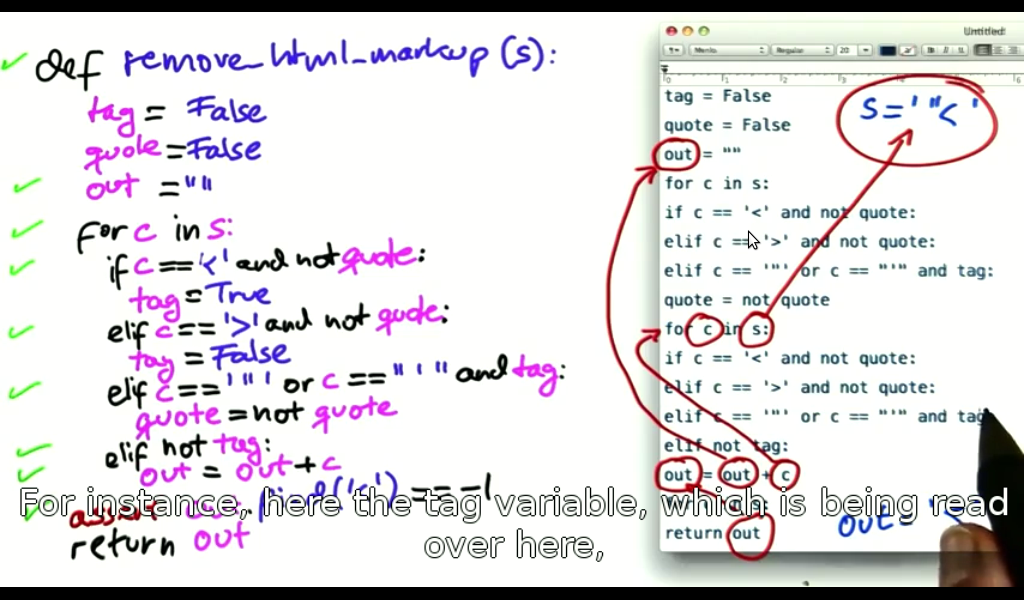 def remove_html_markup (s):
tag = False
quote = False
out = ""
for c in s:
if c == '<' and not quote:
tag = True
elif c == '>' and not quote:
tag = False
elif c == '"' or c == "'" and tag:
quote = not quote
elif not tag:
out = out + c
assert out.find('<') == -1
return out
Untitled
Menlo Regular 20 B I U
0 1 2 3 4 5 6
tag = False
quote = False
out = ""
for c in s:
if c == '<' and not quote:
elif c == '>' and not quote:
elif c == '"' or c == "'" and tag:
quote = not quote
for c in s:
if c == '<' and not quote:
elif c == '>' and not quote:
elif c == '"' or c == "'" and tag
elif not tag:
out = out + c
return out
s='"<'
out =
For instance, here the tag variable, which is being read
over here,